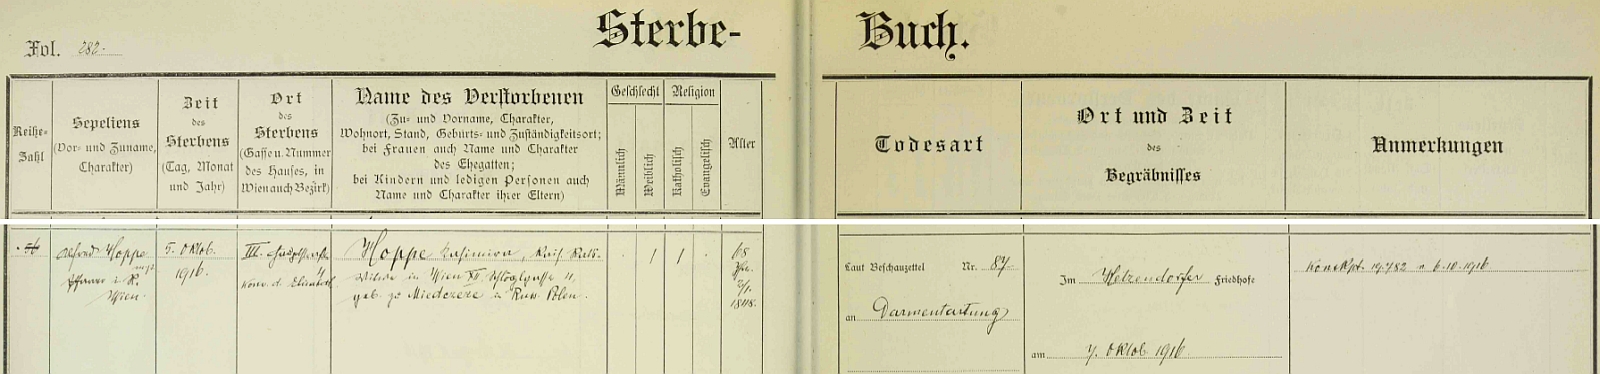 Sterbe-
Buch.
Fol. 282.
Reihe-
Zahl
Sepeliens
(Vor- und Zuname,
Charakter)
Zeit
des
Sterbens
(Tag, Monat
und Jahr)
Ort
des
Sterbens
(Gasse u. Nummer
des Hauses, in
Wien auch Bezirk)
Name des Verstorbenen
(Zu- und Vorname, Charakter,
Wohnort, Stand, Geburts- und Zuständigkeitsort;
bei Frauen auch Name und Charakter
des Ehegatten;
bei Kindern und ledigen Personen auch
Name und Charakter ihrer Eltern)
Geschlecht
Männlich
Weiblich
Religion
Katholisch
Evangelisch
Alter
Todesart
Ort und Zeit
des
Begräbnisses
Anmerkungen
Alfred Hoppe
Pfarrer i. R.
Wien.
5. Oktob.
1916.
III.
Hoppe Kasimira, Kais. Rats-
Witwe in Wien XII
geb. zu Miedzeze in Russ. Polen.
1
1
68
Jhr.
1848.
Laut Beschauzettel Nr. 87
an Darmentartung
Im Hetzendorfer Friedhofe
am 7. Oktob 1916
Konskpt. 19782 v 6.10.1916